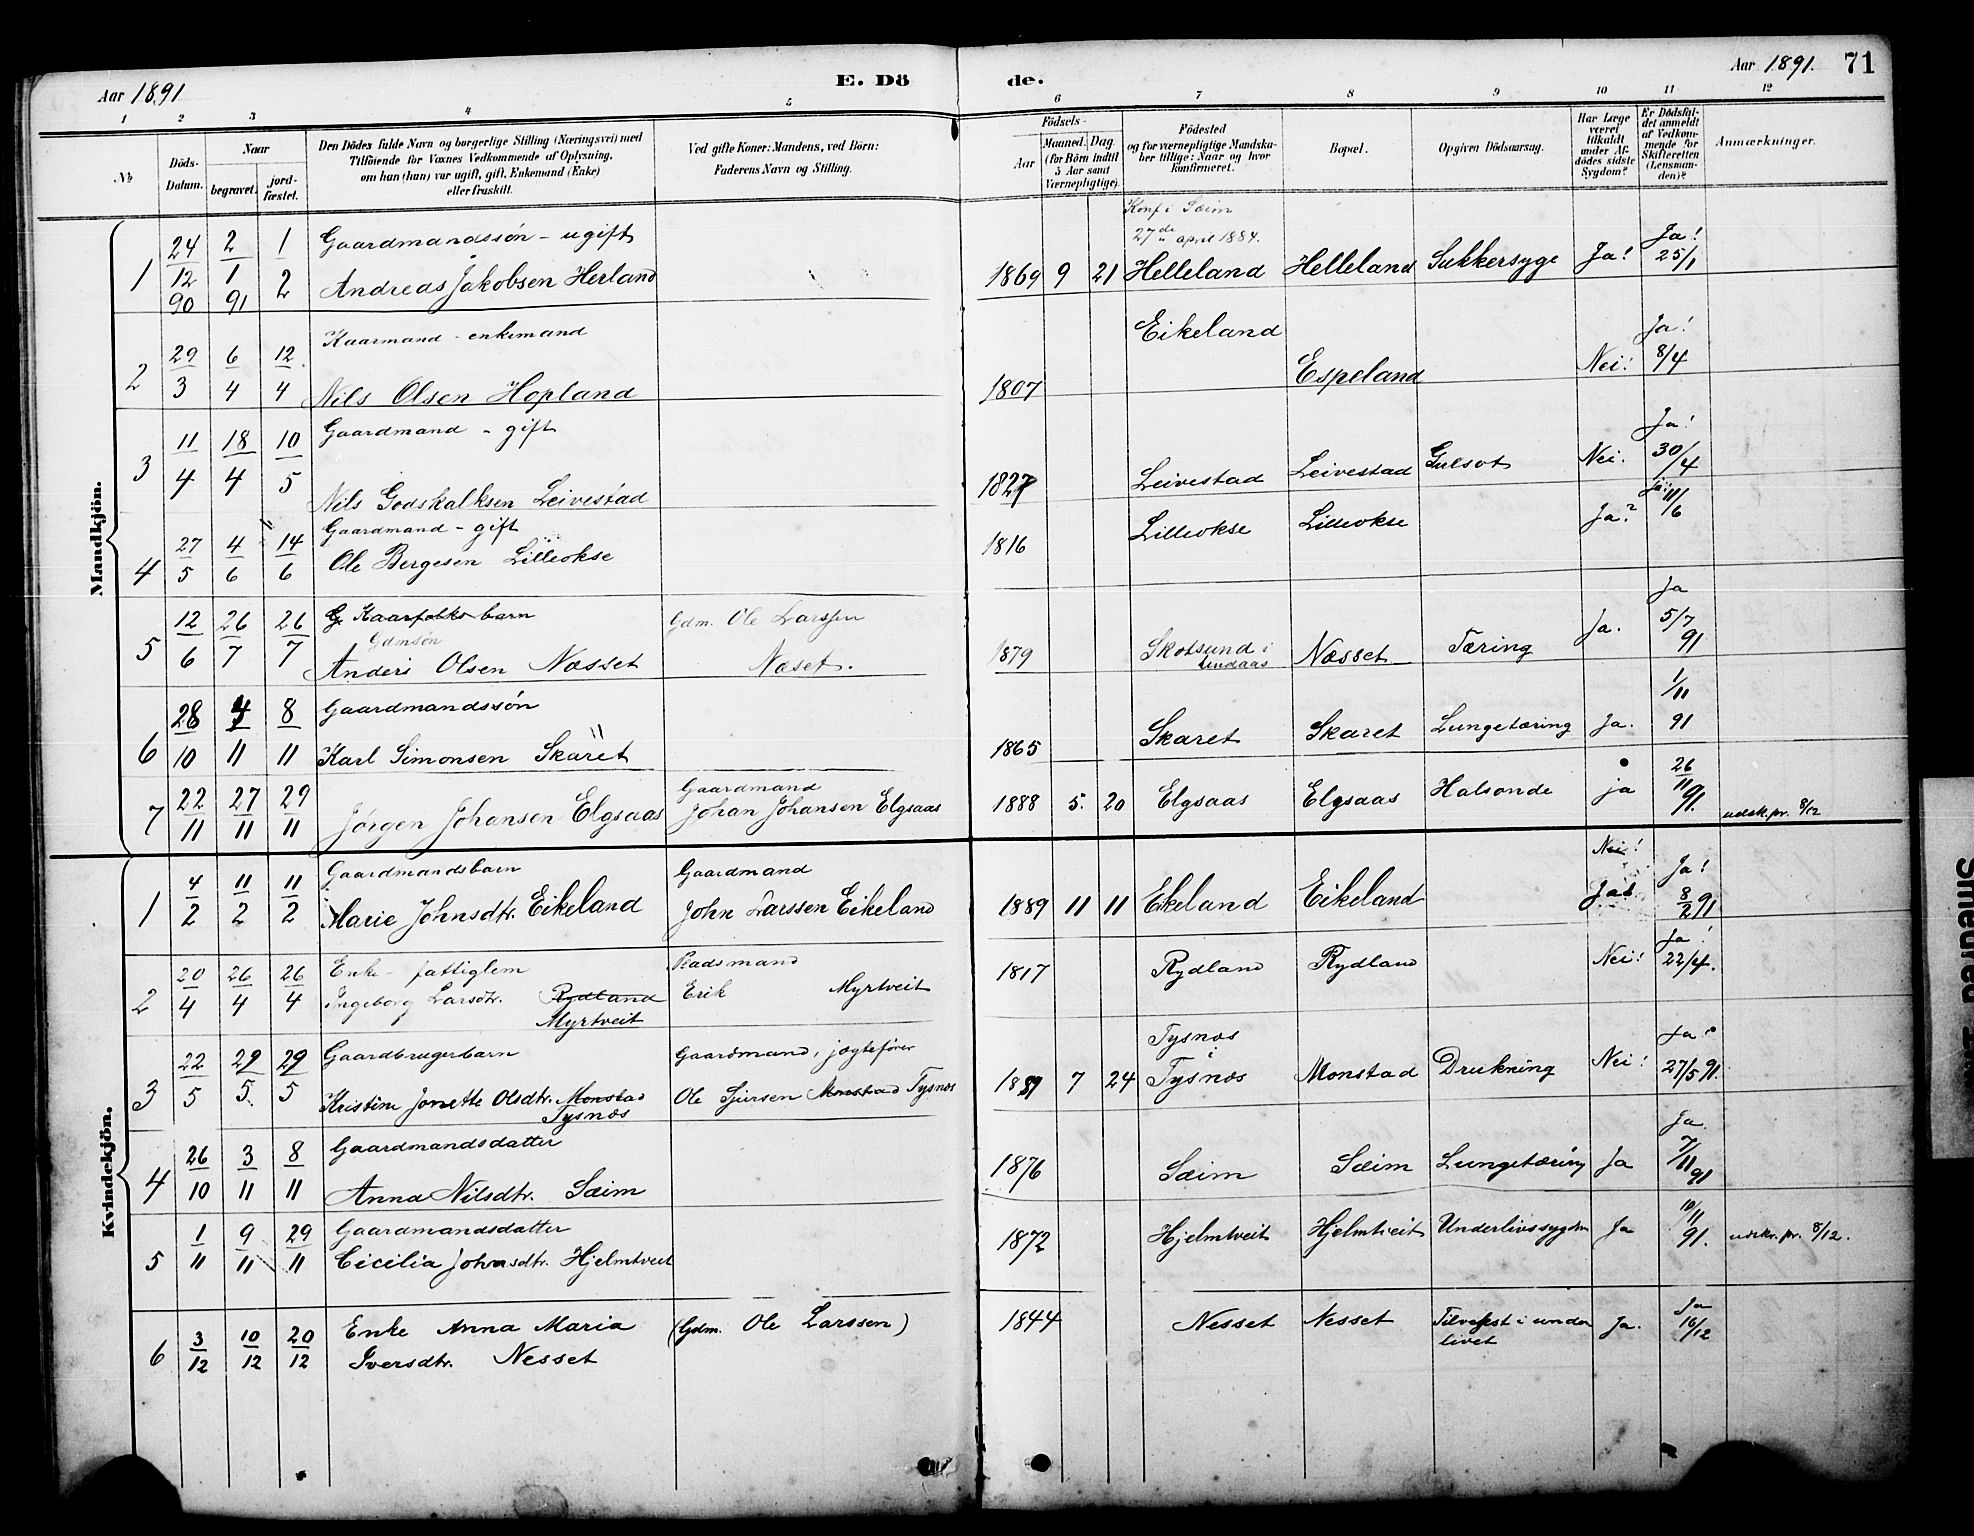 Aar 1891
E. Dö de.
Aar 1891. 71
1 2 3 4 5 6 7 8 9 10 11 12
№
Döds-Datum.
Naar
begravet.
jord-fæstet.
Den Dödes fulde Navn og borgerlige Stilling (Næringsvei) med
Tilföiende for Voxnes Vedkommende af Oplysning,
om han (hun) var ugift, gift, Enkemand (Enke)
eller fraskilt.
Ved gifte Koner: Mandens, ved Börn:
Faderens Navn og Stilling.
Födsels-
Aar
Maaned. Dag.
(for Börn indtil
5 Aar samt
Værnepligtige).
Födested
og for værnepligtige Mandska-
ber tillige: Naar og hvor
Konfirmeret.
Bopæl.
Opgiven Dödsaarsag.
Har Læge
været
tilkaldt
under Af-
dödes sidste
Sygdom?
Er Dödsfal-
det anmeldt
af Vedkom-
mende for
Skifteretten
(Lensman-
den)?
Anmærkninger.
Mandkjön.
1 24/12 90 2/1 91 1/2 Gaardmandssön - ugift
Andreas Jakobsen Herland
1869 9 21 Konf i Sæim
27de april 1884.
Helleland Helleland Sukkersyge Ja! Ja! 25/1
2 29/3 6/4 12/4 Kaarmand - enkemand
Nils Olsen Hopland
1807 Eikeland Espeland Nei! Ja! 8/4
3 11/4 18/4 10/5 Gaardmand - gift
Nils Godskalksen Leivestad
1827 Leivestad Leivestad Gulsot Nei. Ja! 30/4
4 27/5 4/6 14/6 Gaardmand - gift
Ole Bergesen Lilleokse
1816 Lilleokse Lilleokse Ja? Ja! 11/6
5 12/6 26/7 26/7 Kaarfolks barn
Gdmsön
Anders Olsen Næsset
Gdm. Ole Larssen
Næset.
1879 Skotsund i
Lindaas
Næsset Tæring Ja. Ja 5/7 91
6 28/10 4/11 8/11 Gaardmandssön
Karl Simonsen Skaret
1865 Skaret Skaret Lungetæring Ja. 1/11 91
7 22/11 27/11 29/11 Jørgen Johansen Elgsaas
Gaardmand
Johan Johansen Elgsaas
1888 5. 20 Elgsaas Elgsaas Halsonde ja 26/11 91. udsk. pr. 8/12
Kvindekjön.
1 4/2 11/2 11/2 Gaardmandsbarn
Marie Johnsdtr. Eikeland
Gaardmand
John Larssen Eikeland
1889 11 11 Eikeland Eikeland Nei! Ja! Ja! 8/2 91
2 20/4 26/4 26/4 Enke - fattiglem
Ingeborg Larsdtr. Rydland
Myrtveit
Pladsmand
Erik Myrtveit
1817 Rydland Rydland Nei! Ja! 22/4.
3 22/5 29/5 29/5 Gaardbrugerbarn
Kristine Jonette Olsdtr. Monstad
Tysnæs
Gaardmand, jægtefører
Ole Sjursen Monstad Tysnæs
1889 7 24 Tysnæs
i
Tysnæs
Monstad Drukning Nei! Ja! 27/5 91.
4 26/10 3/11 8/11 Gaardmandsdatter
Anna Nilsdtr. Sæim
1876 Sæim Sæim Lungetæring Ja Ja. 7/11 91
5 1/11 9/11 29/11 Gaardmandsdatter
Cicilia Johnsdtr. Hjelmtveit
1872 Hjelmtveit Hjelmtveit Underlivssygdm Ja 10/11 91. udskr. pr. 8/12.
6 3/12 10/12 20/12 Enke Anna Maria
Iversdtr. Nesset
(Gdm. Ole Larssen)
1844 Nesset Nesset Tilvekst i under
livet
Ja. Ja 16/12